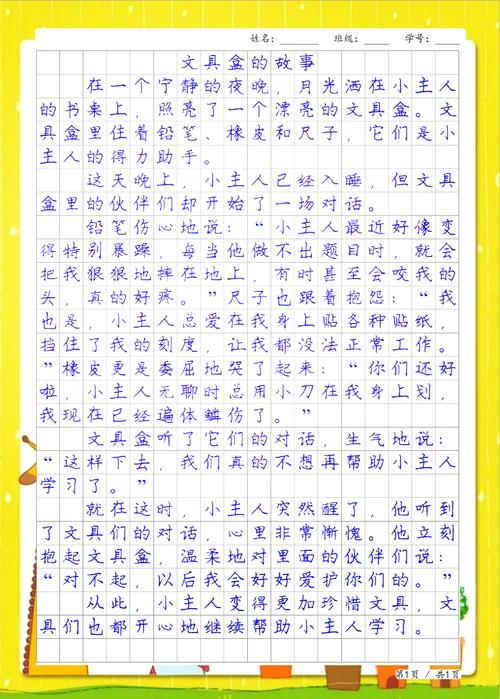 姓名：______ 班级：____ 学号：____
文具盒的故事
在一个宁静的夜晚，月光洒在小主人
的书桌上，照亮了一个漂亮的文具盒。文
具盒里住着铅笔、橡皮和尺子，它们是小
主人的得力助手。
这天晚上，小主人已经入睡，但文具
盒里的伙伴们却开始了一场对话。
铅笔伤心地说：“小主人最近好像变
得特别暴躁，每当他做不出题目时，就会
把我狠狠地摔在地上，有时甚至会咬我的
头，真的好疼。”尺子也跟着抱怨：“我
也是，小主人总爱在我身上贴各种贴纸，
挡住了我的刻度，让我都没法正常工作。
”橡皮更是委屈地哭了起来：“你们还好
啦，小主人无聊时总用小刀在我身上划，
我现在已经遍体鳞伤了。”
文具盒听了它们的对话，生气地说：
“这样下去，我们真的不想再帮助小主人
学习了。”
就在这时，小主人突然醒了，他听到
了文具们的对话，心里非常惭愧。他立刻
抱起文具盒，温柔地对里面的伙伴们说：
“对不起，以后我会好好爱护你们的。”
从此，小主人变得更加珍惜文具，文
具们也都开心地继续帮助小主人学习。
第1页 / 共1页